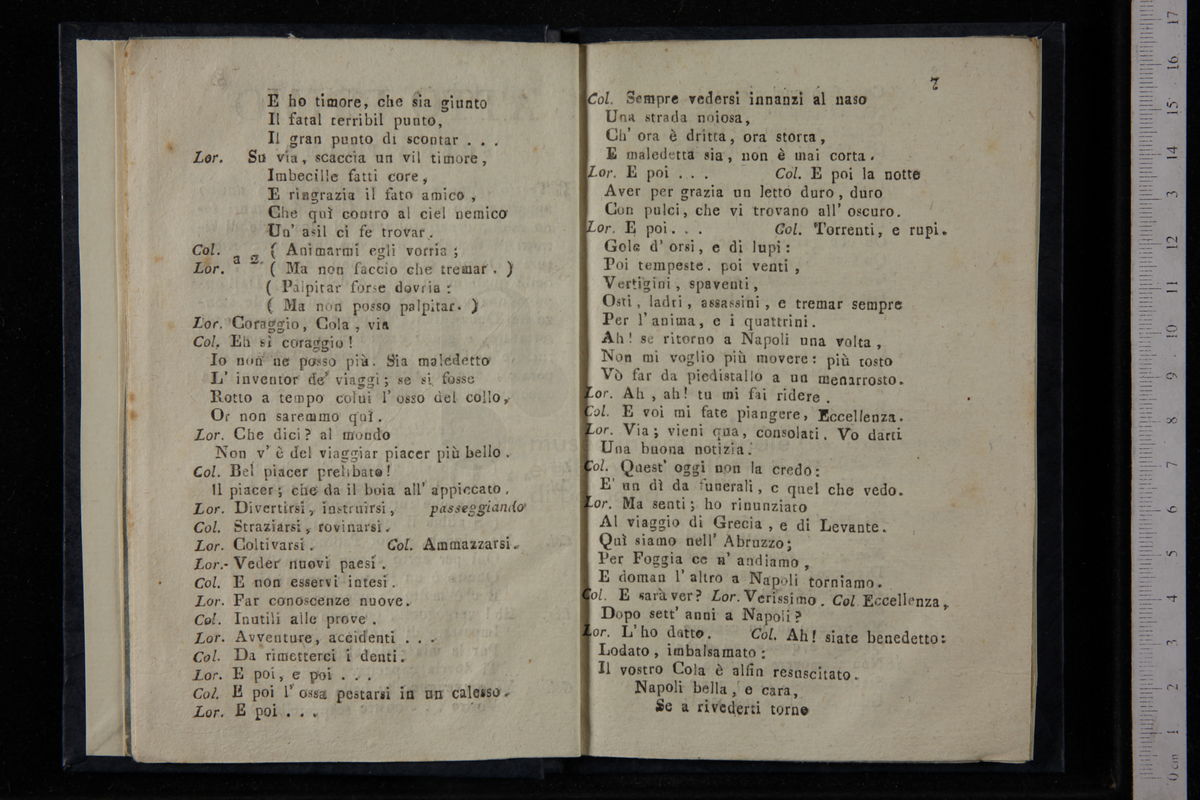 E ho timore, che sia giunto
Il fatal terribil punto,
Il gran punto di scontar . . .
Lor. Su via, scaccia un vil timore,
Imbecille fatti core,
E ringrazia il fato amico ,
Che quì contro al ciel nemico
Un' asil ci fe trovar.
Col. a 2 ( Animarmi egli vorria ;
Lor. ( Ma non faccio che tremar . )
( Palpitar forse dovria :
( Ma non posso palpitar. )
Lor. Coraggio, Cola , via
Col. Eh sì coraggio !
Io non ne posso più. Sia maledetto
L' inventor de' viaggi ; se si fosse
Rotto a tempo colui l' osso del collo,
Or non saremmo quì.
Lor. Che dici ? al mondo
Non v' è del viaggiar piacer più bello .
Col. Bel piacer prelibato !
Il piacer ; che da il boia all' appiccato .
Lor. Divertirsi, instruirsi, passeggiando
Col. Straziarsi, rovinarsi.
Lor. Coltivarsi. Col. Ammazzarsi.
Lor. Veder nuovi paesi.
Col. E non esservi intesi.
Lor. Far conoscenze nuove.
Col. Inutili alle prove .
Lor. Avventure, accidenti . . .
Col. Da rimetterci i denti.
Lor. E poi, e poi . . .
Col. E poi l' ossa pestarsi in un calesso.
Lor. E poi . . .
7
Col. Sempre vedersi innanzi al naso
Una strada noiosa,
Ch' ora è dritta, ora storta,
E maledetta sia, non è mai corta.
Lor. E poi . . . Col. E poi la notte
Aver per grazia un letto duro, duro
Con pulci, che vi trovano all' oscuro.
Lor. E poi. . . Col. Torrenti, e rupi.
Gole d' orsi, e di lupi :
Poi tempeste. poi venti ,
Vertigini, spaventi,
Osti, ladri, assassini, e tremar sempre
Per l'anima, e i quattrini.
Ah! se ritorno a Napoli una volta,
Non mi voglio più movere : più tosto
Vò far da piedistallo a un menarrosto.
Lor. Ah, ah! tu mi fai ridere.
Col. E voi mi fate piangere, Eccellenza.
Lor. Via ; vieni qua, consolati. Vo darti
Una buona notizia.
Col. Quest' oggi non la credo :
E' un dì da funerali, e quel che vedo.
Lor. Ma senti ; ho rinunziato
Al viaggio di Grecia , e di Levante.
Quì siamo nell' Abruzzo ;
Per Foggia ce n' andiamo ,
E doman l' altro a Napoli torniamo.
Col. E sarà ver? Lor. Verissimo. Col Eccellenza,
Dopo sett' anni a Napoli ?
Lor. L'ho dotto. Col. Ah! siate benedetto :
Lodato, imbalsamato :
Il vostro Cola è alfin resuscitato.
Napoli bella, e cara,
Se a rivederti torno